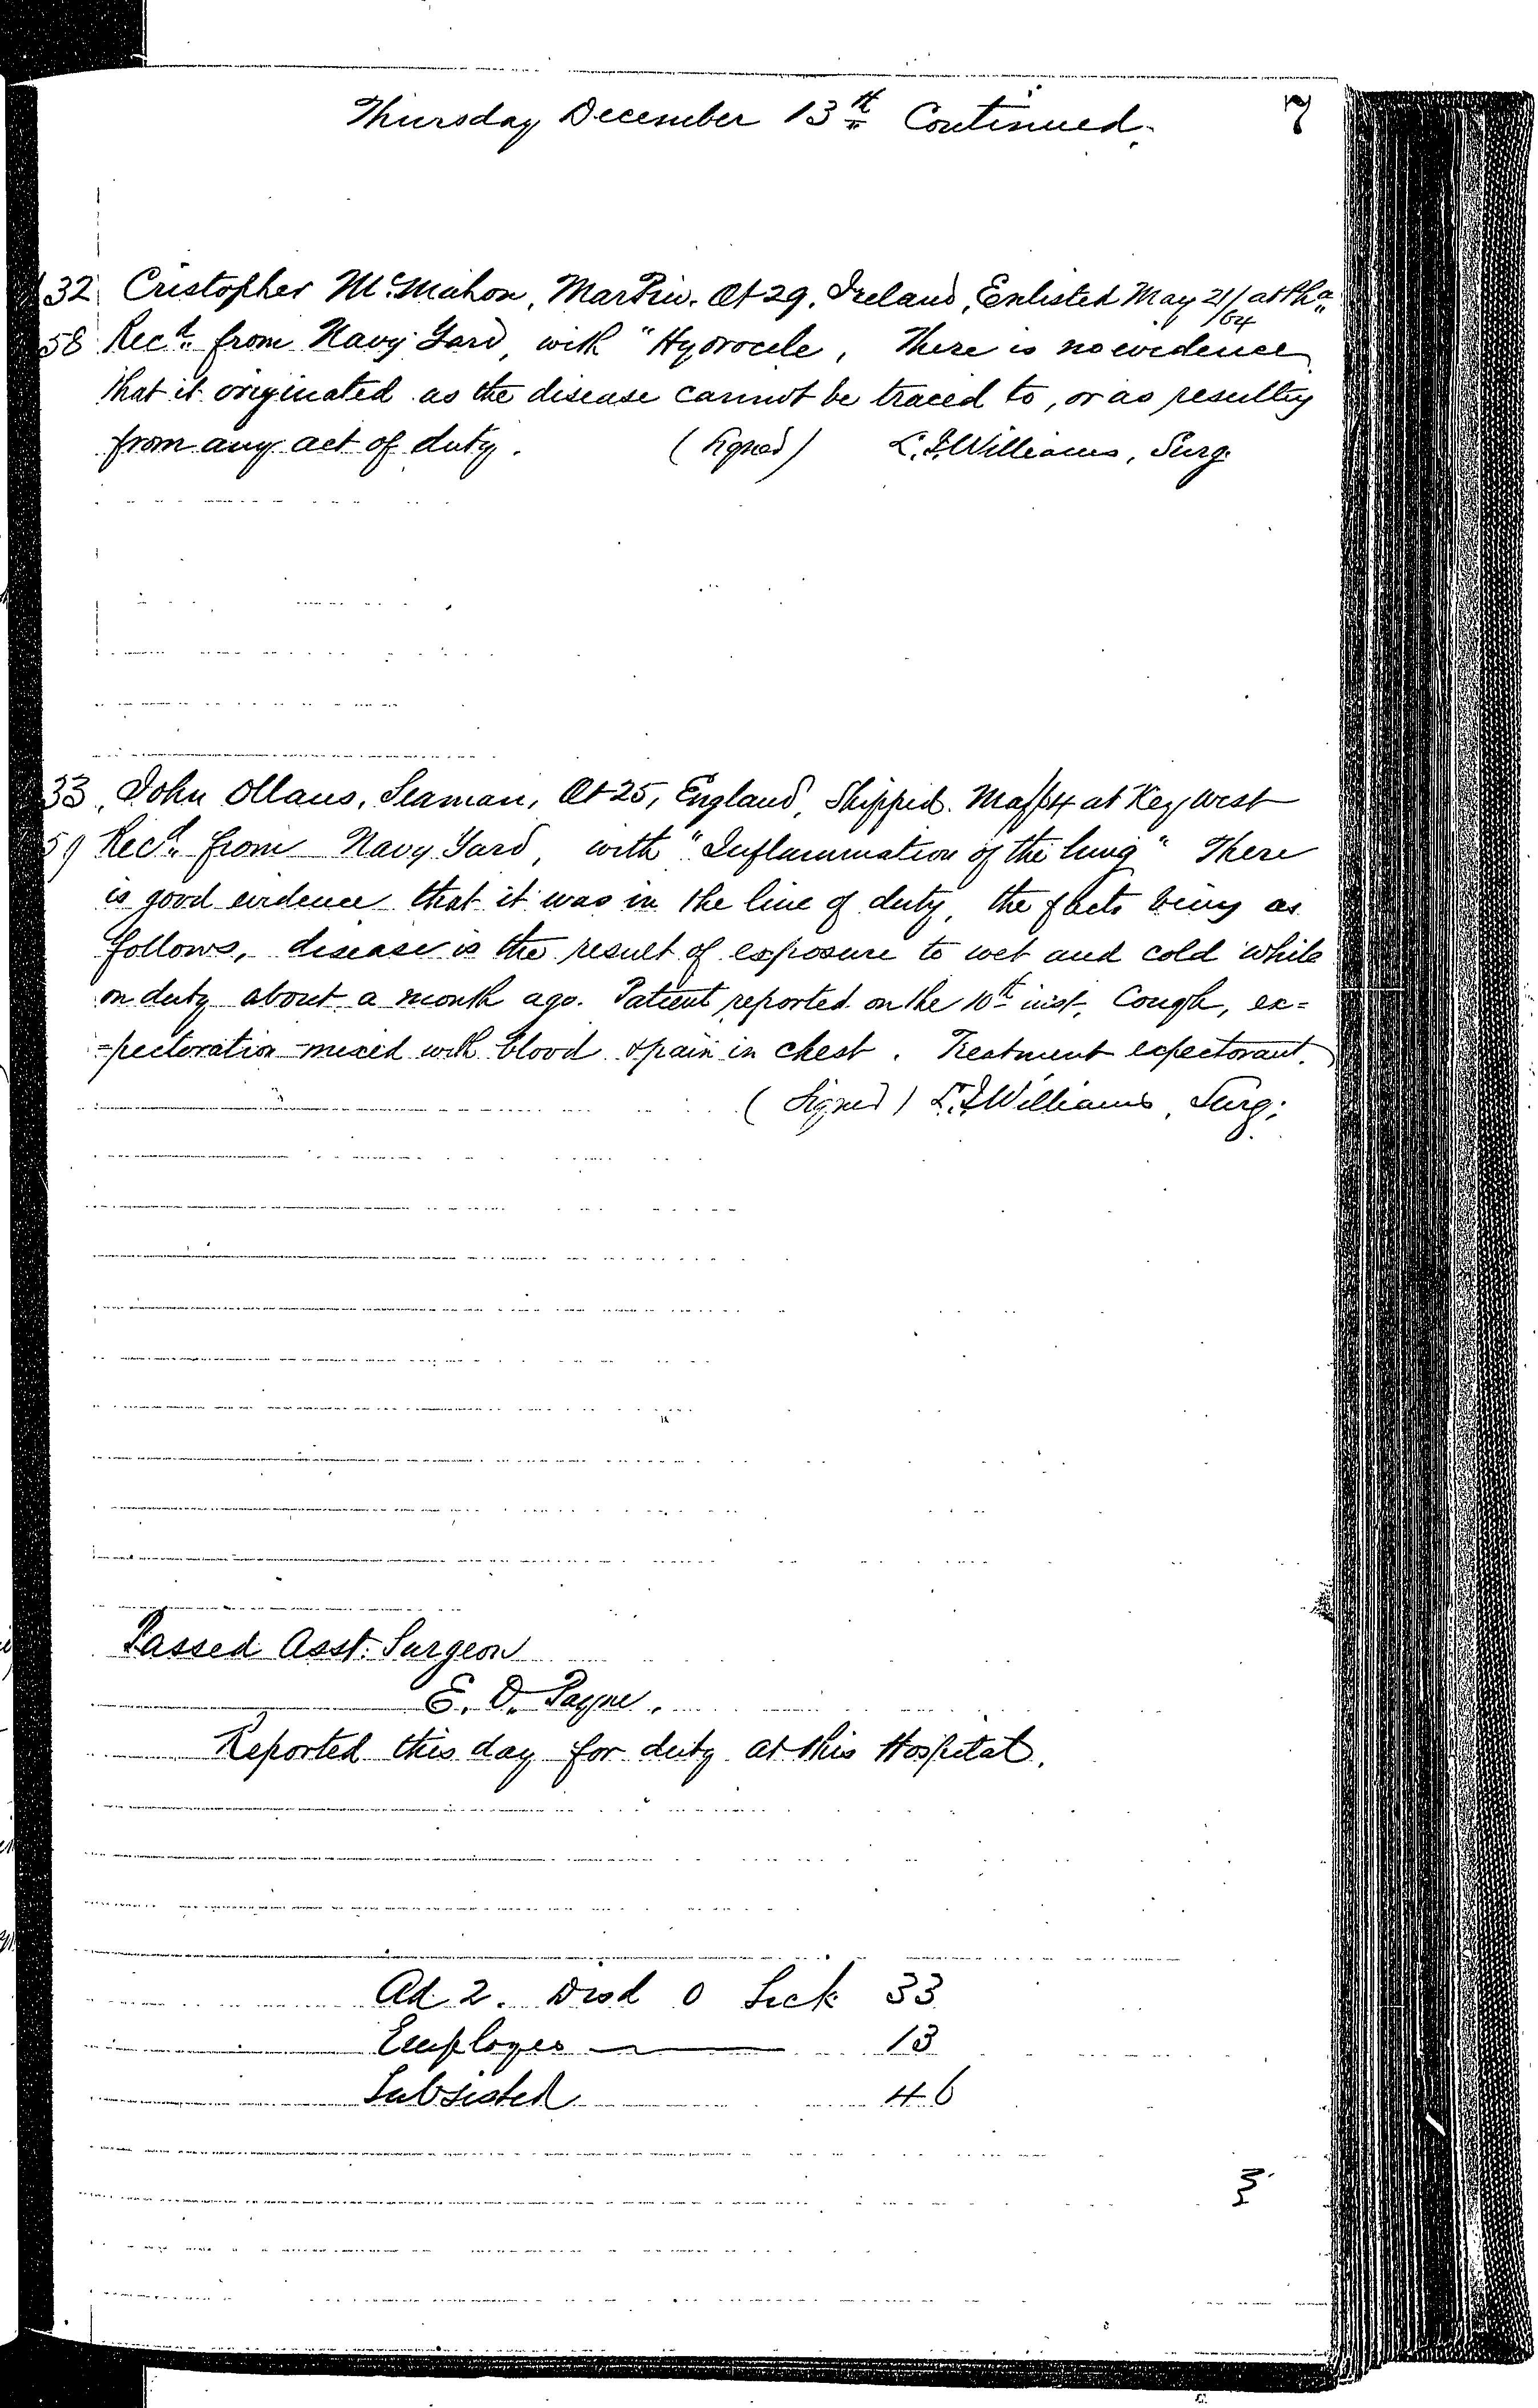 Thursday December 13th Continued. 7
32 Cristopher McMahon, Mar Priv. Æt 29. Ireland, Enlisted May 21/64 at Pha
58 Recd. from Navy Yard, with "Hydrocele, There is no evidence
that it originated as the disease cannot be traced to, or as resulting
from any act of duty. (Signed) L.J. Williams, Surg.
33. John Ollaus, Seaman, Æt 25, England, Shipped. at Key West
59 Recd. from Navy Yard, with "Inflammation of the lung" There
is good evidence that it was in the line of duty, the facts being as
follows, disease is the result of exposure to wet and cold while
on duty about a month ago. Patient reported on the 10th inst, Cough, ex=
=pectoration mixed with blood & pain in chest. Treatment expectorant.
(Signed) L.J. Williams, Surg.
Passed Asst. Surgeon
E. D. Payne.
Reported this day for duty at this Hospital.
Ad 2. Disd 0 Sick 33
Employes 13
Subsisted 46